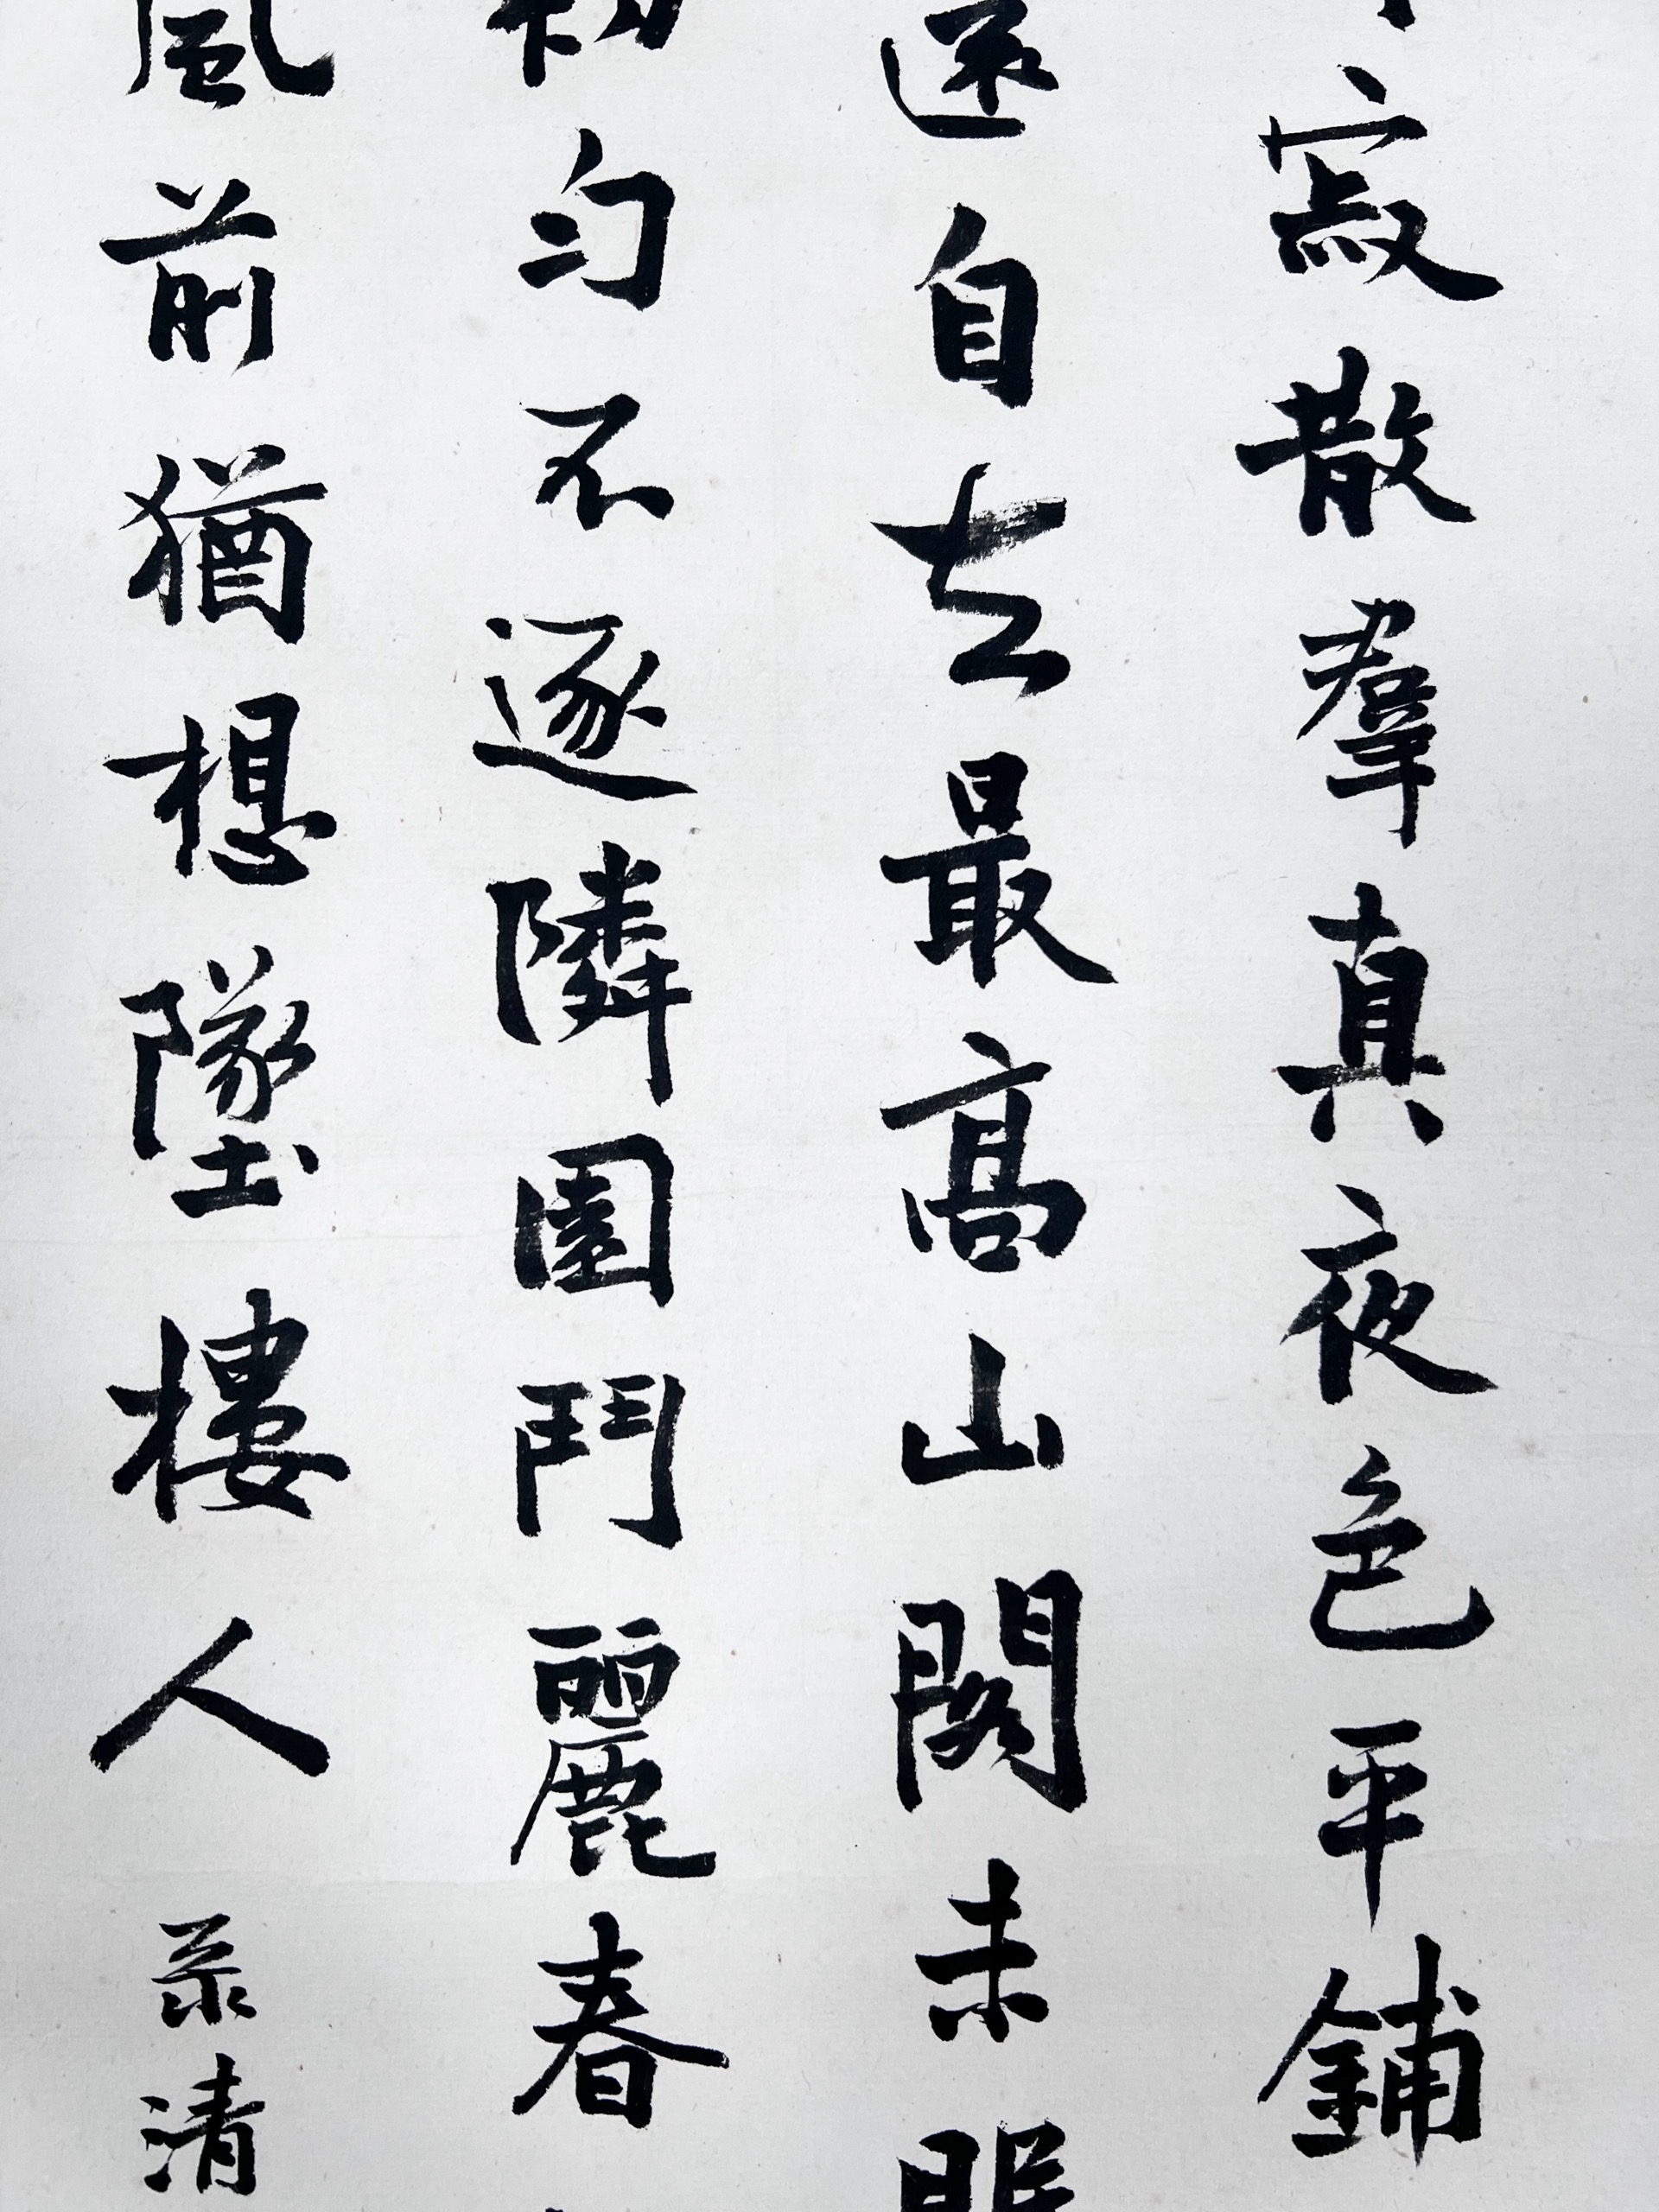 寂散羣真夜色平鋪
自去最高山閣未
勻不逐隣園鬥麗春
風前猶想墜樓人 录清